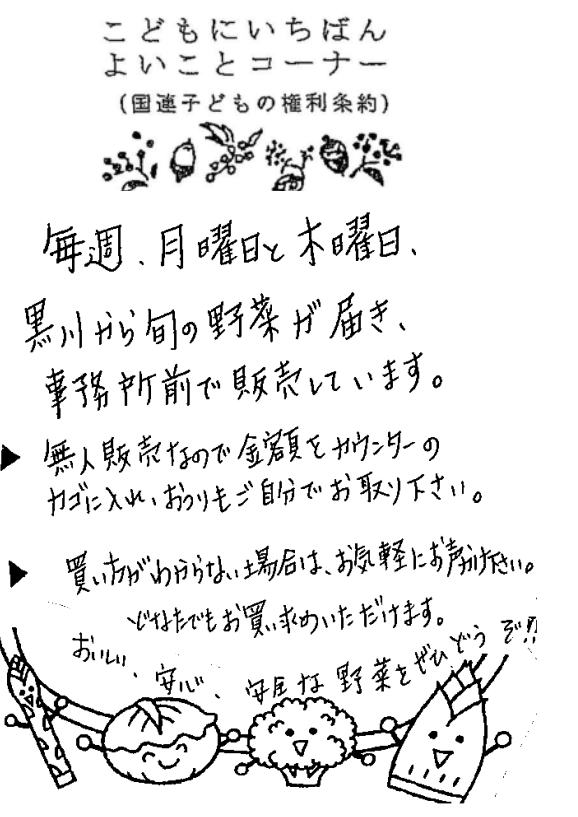 こどもにいちばん
よいことコーナー
(国連子どもの権利条約)
毎週、月曜日と木曜日、
黒川から旬の野菜が届き、
事務所前で販売しています。
▶ 無人販売なので金額をカウンターの
カゴに入れ、おつりもご自分でお取り下さい。
▶ 買い方がわからない場合は、お気軽にお声がけ下さい。
どなたでもお買い求めいただけます。
おいしい、安心、安全な野菜をぜひどうぞ!!